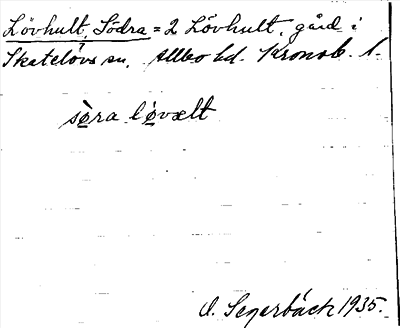 Lövhult, Södra = 2 Lövhult, gård i
Skatelövs sn, Allbo hd. Kronob. l.
sø̀ra lø̀vælt
O. Segerbäck 1935.